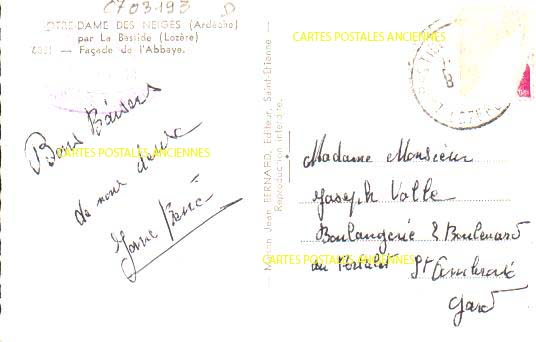 C703-193 D
NOTRE-DAME DES NEIGES (Ardèche)
par La Bastide (Lozère)
Façade de l'Abbaye.
CARTES POSTALES ANCIENNES
Bons Baisers
CARTES POSTALES ANCIENNES
de nous deux
Maison Jean BERNARD, Editeur, Saint-Etienne
Reproduction interdite.
Madame Monsieur
Joseph Valle
Boulangerie Boulevard
CARTES POSTALES ANCIENNES
du St Ambroix
Gard